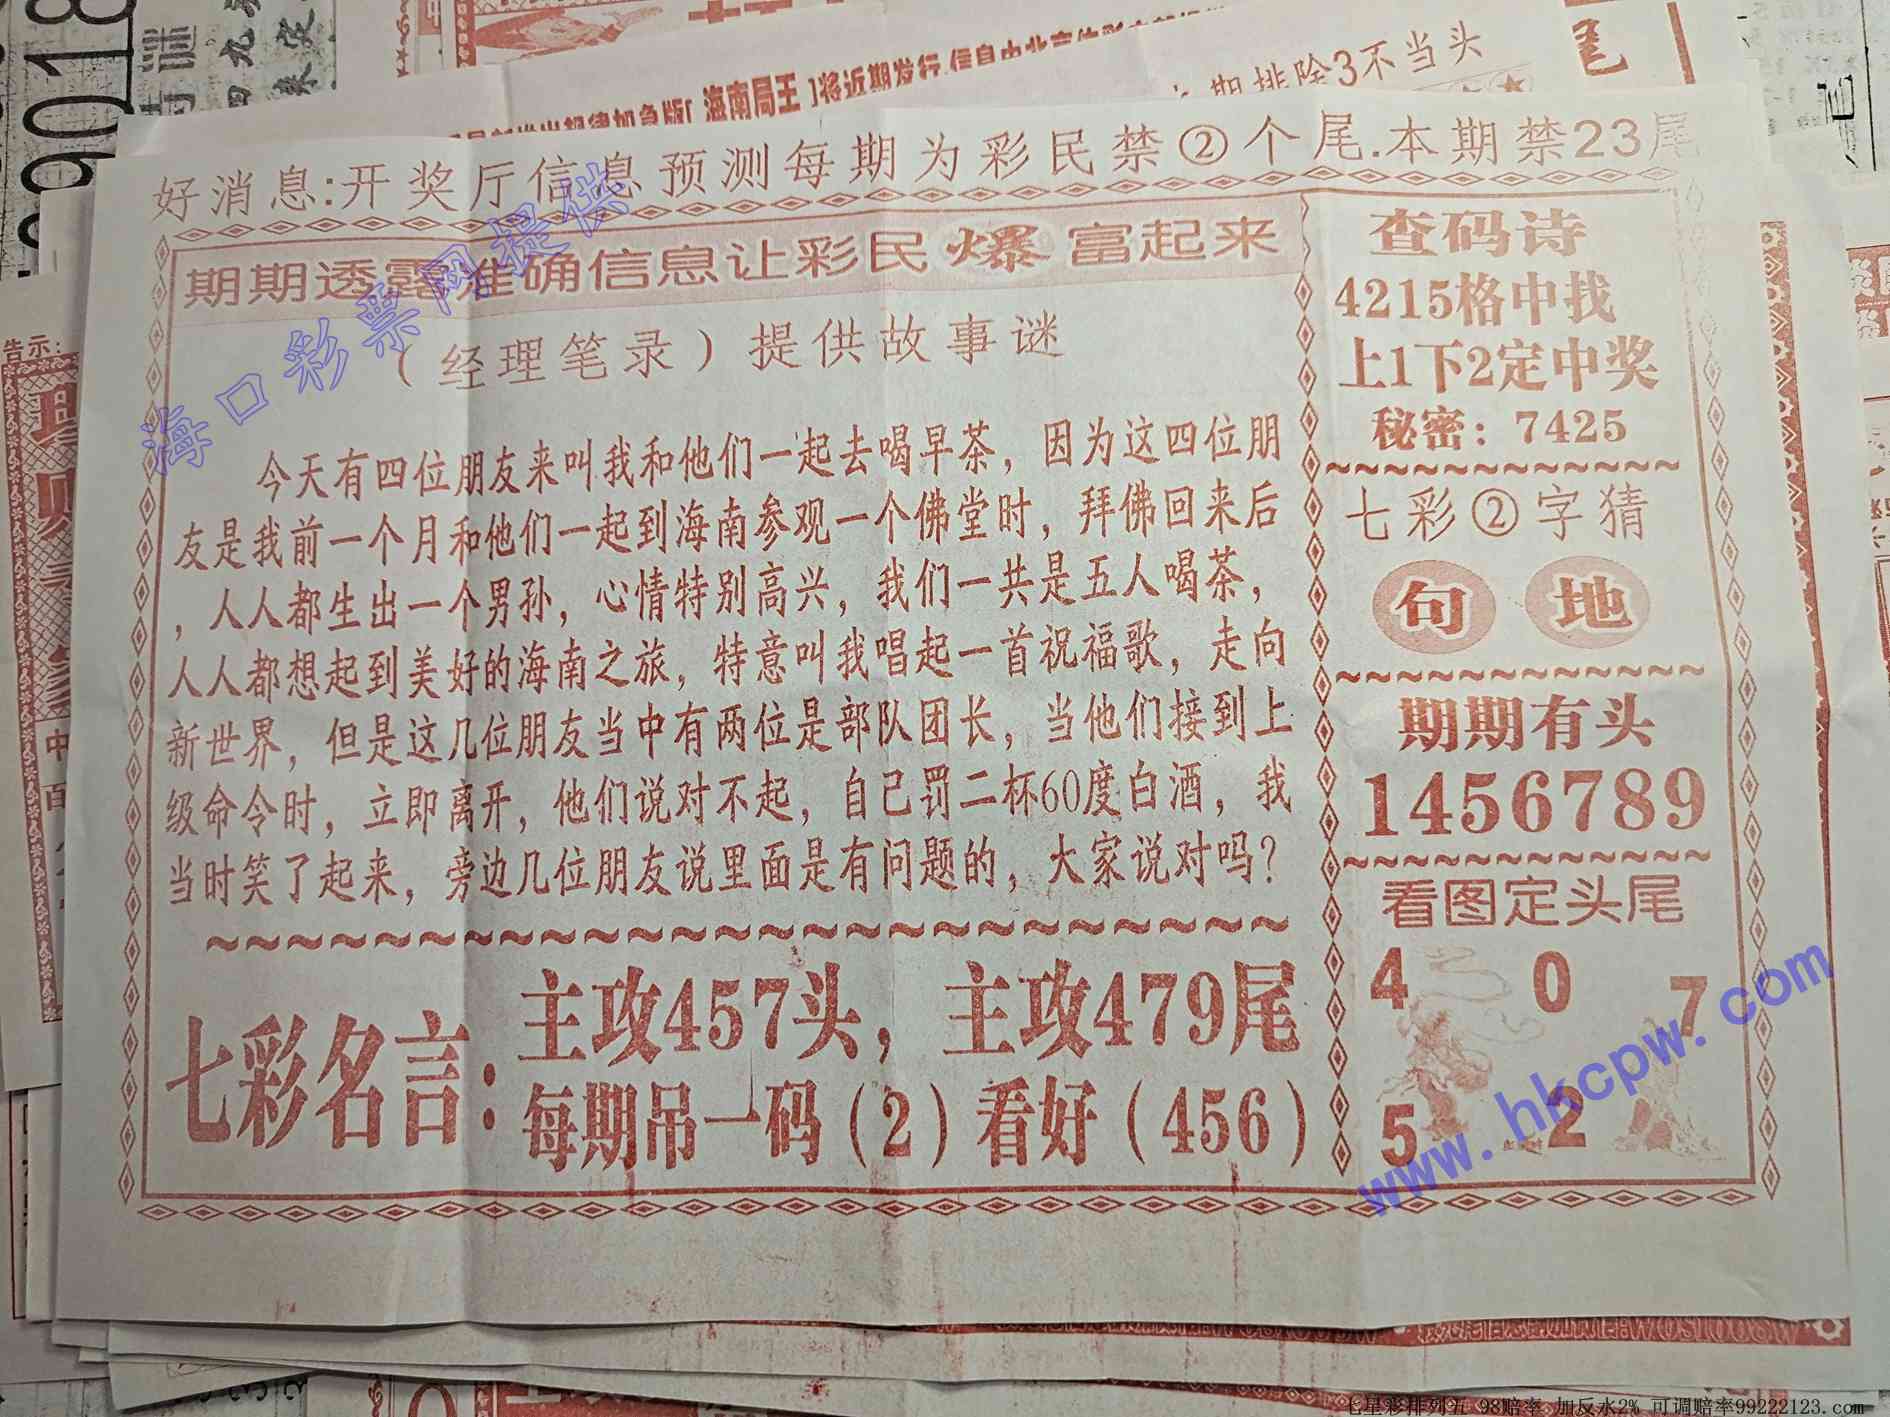 期排除3不当头
将近期发行.信息由北京体彩
[海南局王]
好消息:开奖厅信息预测每期为彩民禁②个尾.本期禁23尾
期期透露准确信息让彩民爆富起来
(经理笔录)提供故事谜
今天有四位朋友来叫我和他们一起去喝早茶，因为这四位朋
友是我前一个月和他们一起到海南参观一个佛堂时，拜佛回来后
，人人都生出一个男孙，心情特别高兴，我们一共是五人喝茶，
人人都想起到美好的海南之旅，特意叫我唱起一首祝福歌，走向
新世界，但是这几位朋友当中有两位是部队团长，当他们接到上
级命令时，立即离开，他们说对不起，自己罚二杯60度白酒，我
当时笑了起来，旁边几位朋友说里面是有问题的，大家说对吗？
七彩名言:
主攻457头，主攻479尾
每期吊一码(2)看好(456)
查码诗
4215格中找
上1下2定中奖
秘密：7425
七彩②字猜
句 地
期期有头
1456789
看图定头尾
4 0 7
5 2
海口彩票网提供
www.hkcpw.com
告示:
七星彩排列五 98赔率 加反水2% 可调赔率99222123.com